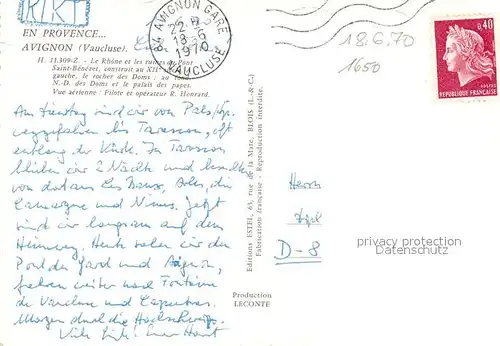 R/KT
EN PROVENCE...
AVIGNON (Vaucluse).
H. 11.309-Z. - Le Rhône et les ruines du Pont
Saint-Bénézet, construit au XIIe
gauche, le rocher des Doms ; au fond,
N.-D. des Doms et le palais des papes.
Vue aérienne : Pilote et opérateur R. Henrard.
84 AVIGNON GARE
22 H
18-6
1970
VAUCLUSE
0,40
REPUBLIQUE FRANÇAISE
18.6.70
1650
Am Dienstag sind wir von Pals
weggefahren bis Tarascon, oft
entlang der Küste. In Tarascon
blieben wir 2 Nächte und
von dort aus Les Baux, Arles, die
Camargue und Nimes. Jetzt
sind wir langsam auf dem
Heimweg. Heute sahen wir den
Pont du Gard und Avignon,
fahren weiter nach Fontaine
de Vaucluse und
Morgen durch die
Viele
Editions ESTEL, 63, rue de la Mare, BLOIS (L.-&-C.)
Fabrication française - Reproduction interdite.
Production
LECONTE
Herrn
Dipl
D-8
privacy protection
Datenschutz